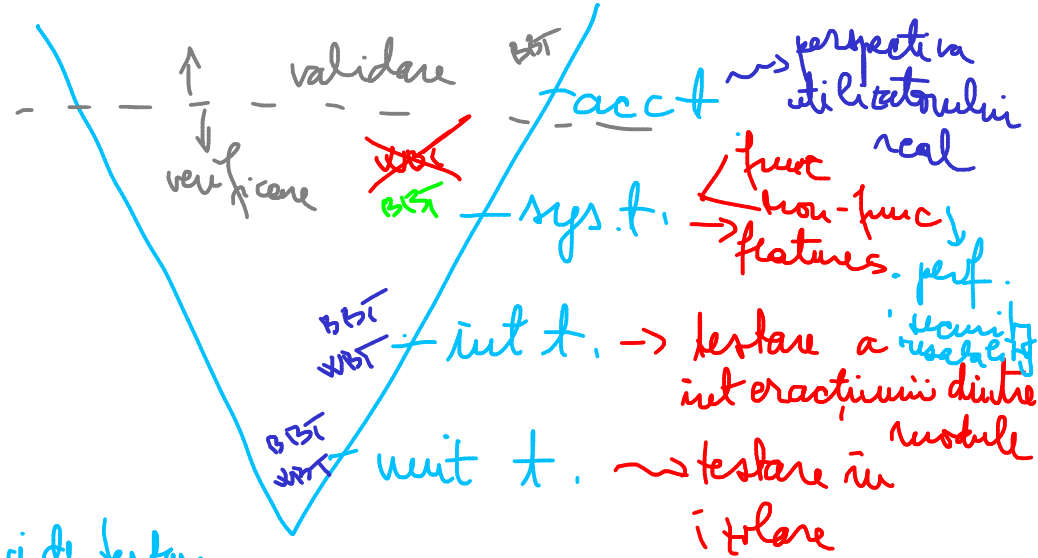 BBT
validare
acc t
perspectiva
utilizatorului
real
verificare
WBT
BBT
sys. t.
func
non-func
features.
perf.
security
usability
BBT
WBT
int t.
testare a
interacțiunii dintre
module
BBT
WBT
unit t.
testare în
izolare
de testare